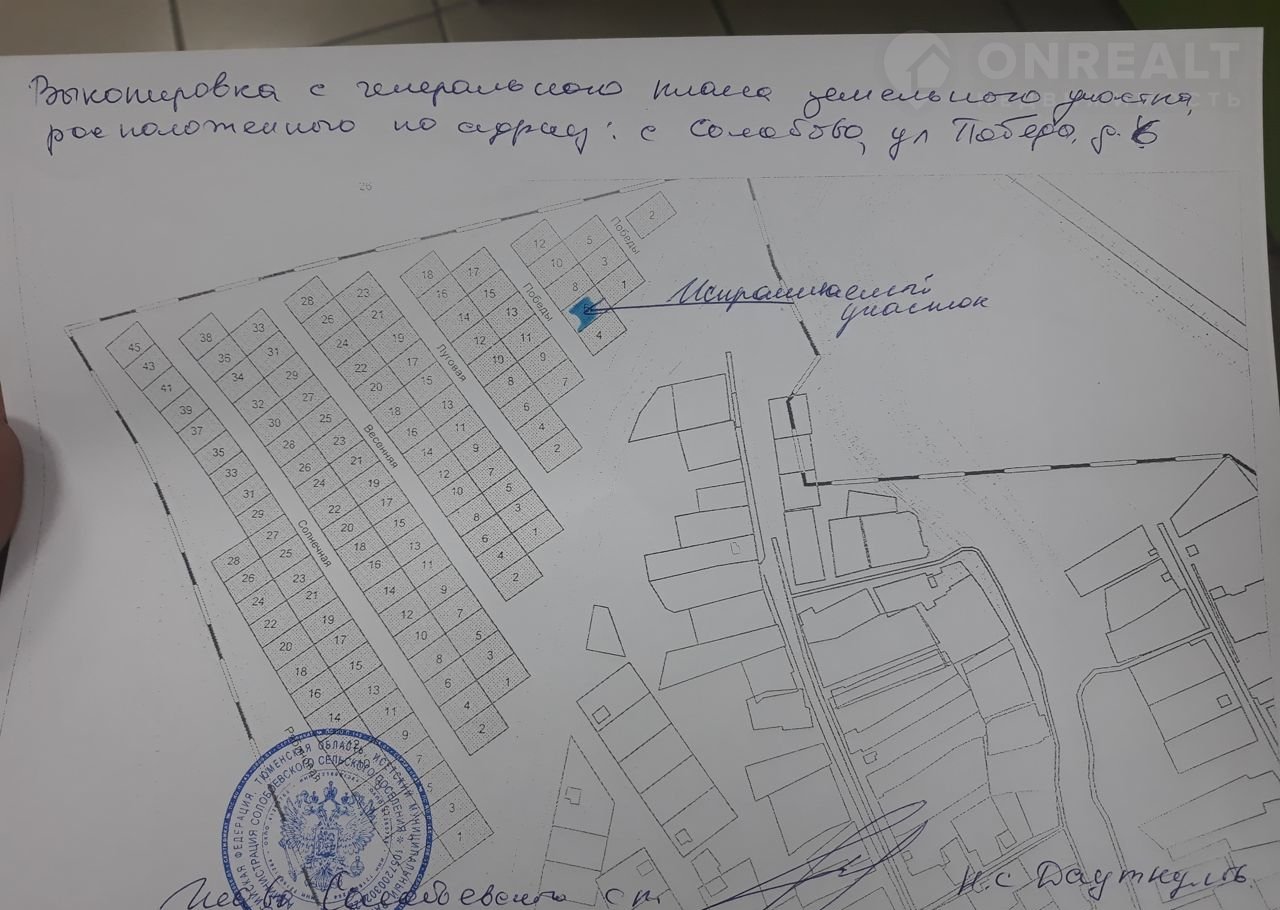 ONREALT
Выкопировка с генерального плана земельного участка,
расположенного по адресу: с Солобово, ул Победа, д. 6
26
Победы
2
12
5
10
3
8
1
4
Победы
Испрашиваемый
участок
18
17
16
15
14
13
12
11
10
9
8
7
6
4
2
Луговая
28
23
26
21
24
19
22
17
20
15
18
13
16
11
14
9
12
7
10
5
8
3
6
1
4
2
Весенняя
38
33
36
31
34
29
32
27
30
25
28
23
26
21
24
19
22
17
20
15
18
13
16
11
14
9
12
7
10
5
8
3
6
1
4
2
Солнечная
45
43
41
39
37
35
33
31
29
27
28
25
26
23
24
21
22
19
20
17
18
15
16
13
14
11
12
9
7
5
3
1
ТЮМЕНСКАЯ ОБЛАСТЬ, ИСЕТСКИЙ МУНИЦИПАЛЬНЫЙ
АДМИНИСТРАЦИЯ СОЛОБОЕВСКОГО СЕЛЬСКОГО ПОСЕЛЕНИЯ
Глава Солобоевского с п
Н.С Дауткулов